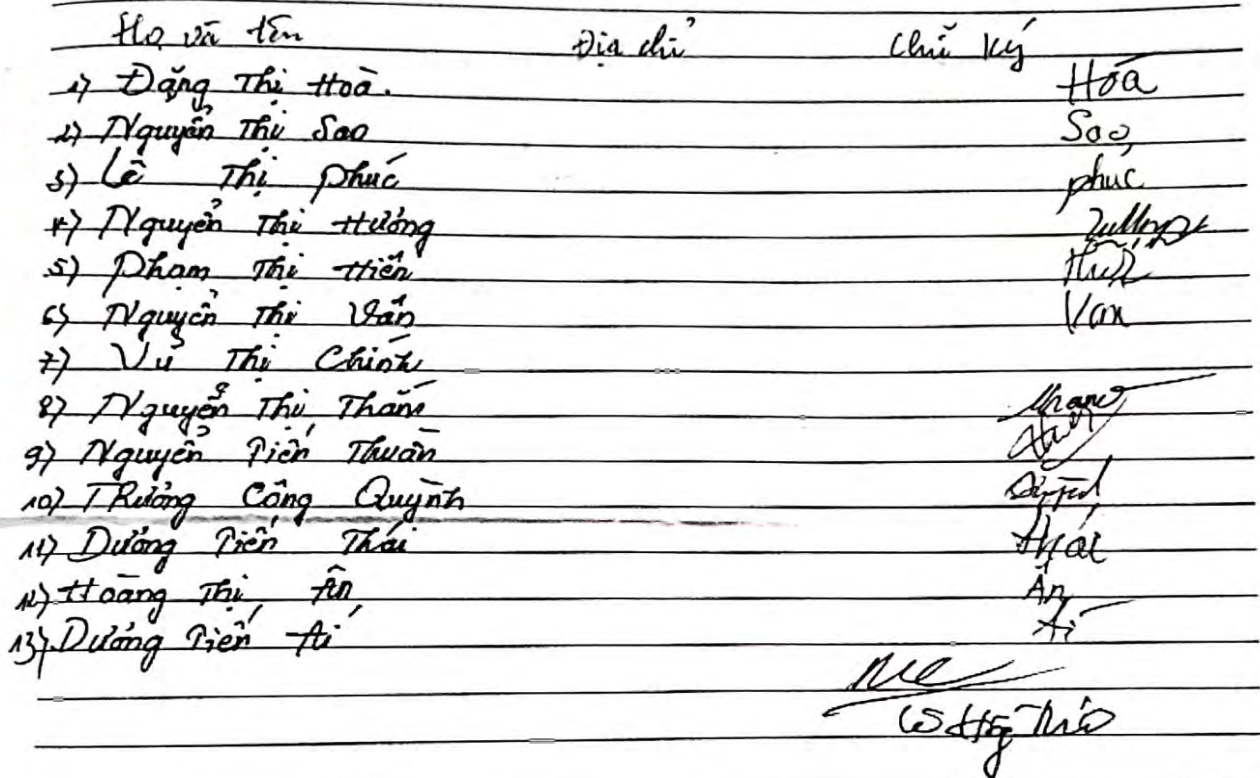 Họ và tên Địa chỉ Chữ ký
1) Đặng Thị Hoà. Hoà
2) Nguyễn Thị Sao Sao
3) Lê Thị Phúc phúc
4) Nguyễn Thị Hường
5) Phạm Thị Hiền
6) Nguyễn Thị Vân Van
7) Vũ Thị Chinh
8) Nguyễn Thị Thắm
9) Nguyễn Tiến Thuận
10) TRương Công Quỳnh
11) Dương Tiến Thái Thái
12) Hoàng Thị Ân Ân
13) Dương Tiến Ái Ái